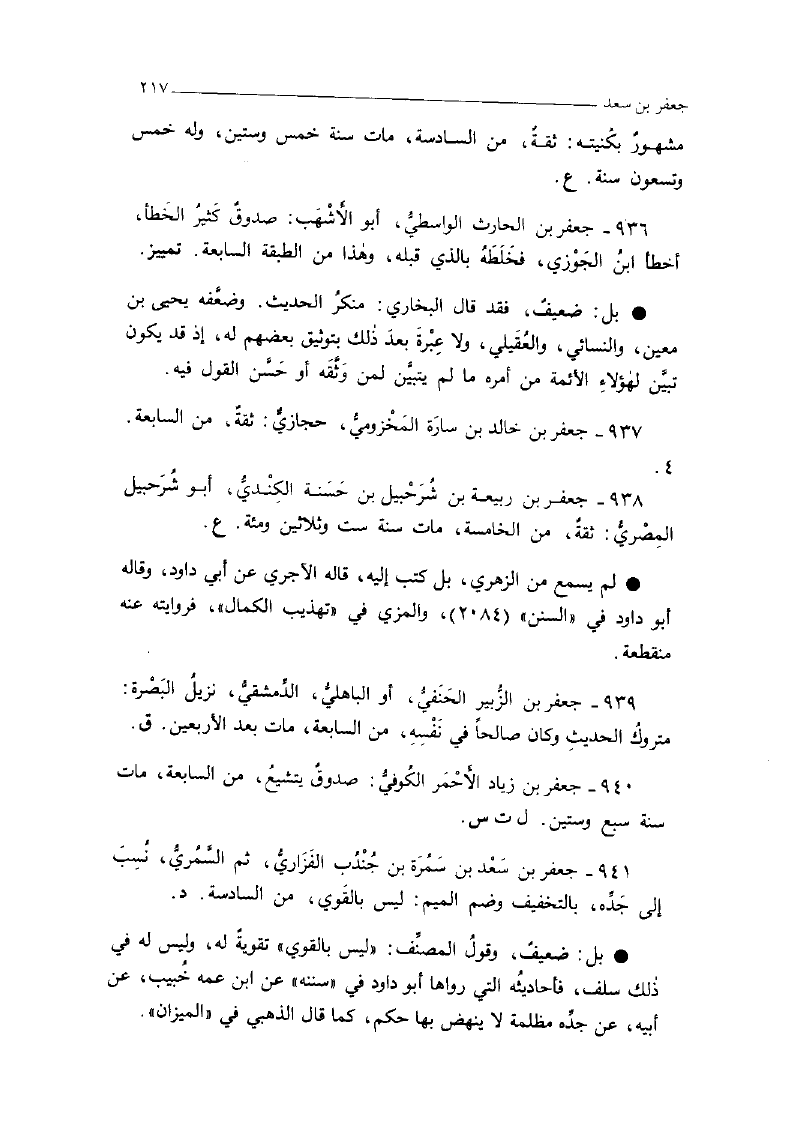 جعفر بن سعد ٢١٧
مشهورٌ بكُنيته: ثقةٌ، من السادسة، مات سنة خمس وستين، وله خمس
وتسعون سنة. ع.
٩٣٦ - جعفر بن الحارث الواسطيُّ، أبو الأَشْهَب: صدوقٌ كَثيرُ الخَطأ،
أخطأ ابنُ الجَوْزي، فخَلَطَهُ بالذي قبله، وهٰذا من الطبقة السابعة. تمييز.
● بل: ضعيفٌ، فقد قال البخاري: منكرُ الحديث. وضعَّفه يحيى بن
معين، والنسائي، والعُقيلي، ولا عِبْرةَ بعدَ ذٰلك بتوثيق بعضهم له، إذ قد يكون
تبيَّن لهٰؤلاءِ الأئمة من أمره ما لم يتبيَّن لمن وَثَّقَه أو حَسَّن القول فيه.
٩٣٧ - جعفر بن خالد بن سارَة المَخْزوميُّ، حجازيٌّ: ثقةٌ، من السابعة.
٤.
٩٣٨ - جعفر بن ربيعة بن شُرَحْبيل بن حَسَنة الكِنْديُّ، أبو شُرَحبيل
المِصْريُّ: ثقةٌ، من الخامسة، مات سنة ست وثلاثين ومئة. ع.
● لم يسمع من الزهري، بل كتب إليه، قاله الآجري عن أبي داود، وقاله
أبو داود في «السنن» (٢٠٨٤)، والمزي في «تهذيب الكمال»، فروايته عنه
منقطعة.
٩٣٩ - جعفر بن الزُّبير الحَنَفيُّ، أو الباهليُّ، الدِّمشقيُّ، نزيلُ البَصْرة:
متروكُ الحديثِ وكان صالحاً في نَفْسِهِ، من السابعة، مات بعد الأربعين. ق.
٩٤٠ - جعفر بن زياد الأَحْمَر الكُوفيُّ: صدوقٌ يتشيعُ، من السابعة، مات
سنة سبع وستين. ل ت س.
٩٤١ - جعفر بن سَعْد بن سَمُرَة بن جُنْدُب الفَزَاريُّ، ثم السَّمُريُّ، نُسِبَ
إلى جَدِّه، بالتخفيف وضم الميم: ليس بالقَوي، من السادسة. د.
● بل: ضعيفٌ، وقولُ المصنِّف: «ليس بالقوي» تقويةٌ له، وليس له في
ذٰلك سلف، فأحاديثُه التي رواها أبو داود في «سننه» عن ابن عمه خُبيب، عن
أبيه، عن جدِّه مظلمة لا ينهض بها حكم، كما قال الذهبي في «الميزان».